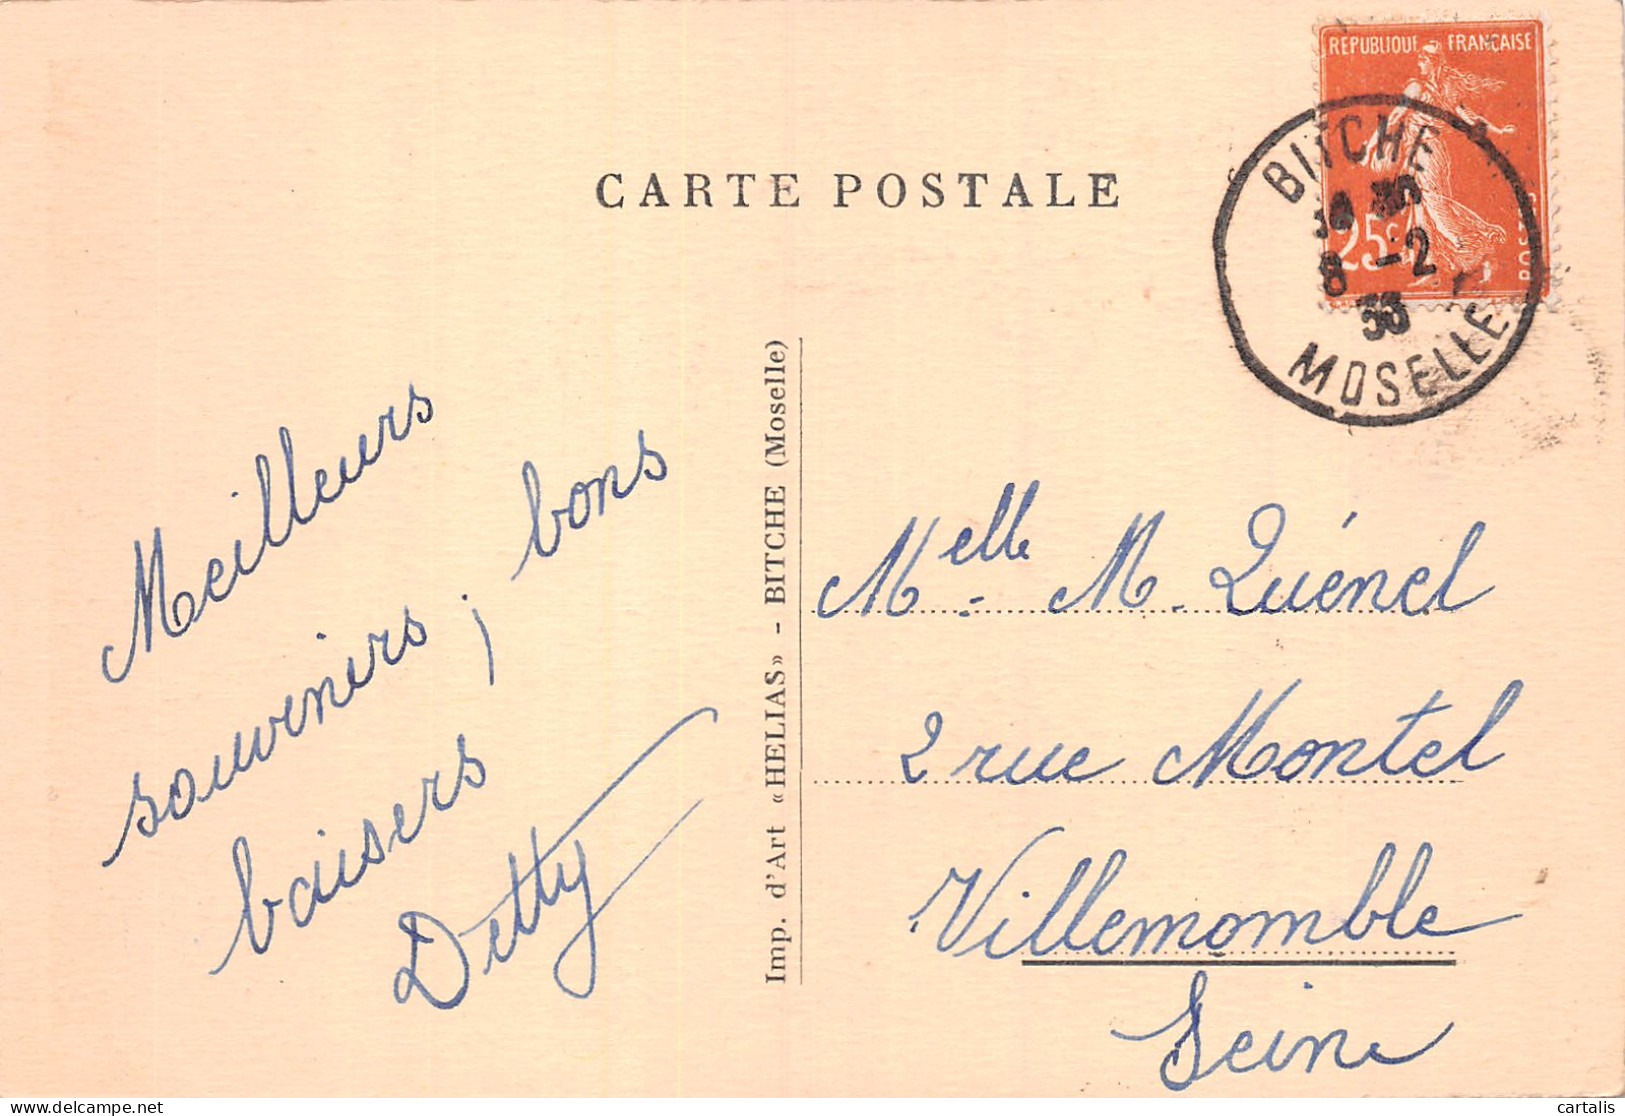 CARTE POSTALE
REPUBLIQUE FRANCAISE
25c
POSTES
BITCHE
8 -2
MOSELLE
Meilleurs
souvenirs, bons
baisers
Detty
Imp. d'Art «HELIAS» - BITCHE (Moselle)
Melle. M. Quénel
2 rue Montel
Villemomble
Seine
cartalis